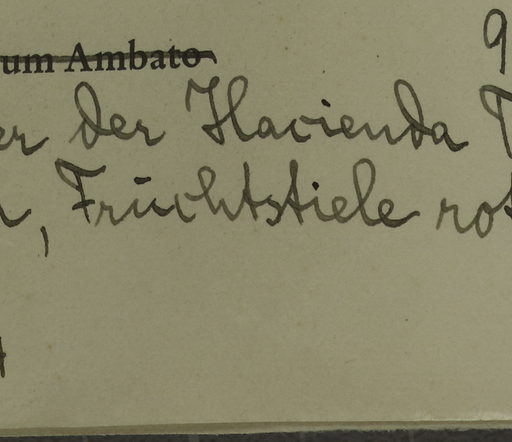 9
um Ambato
er der Hacienda
, Fruchtstiele rot